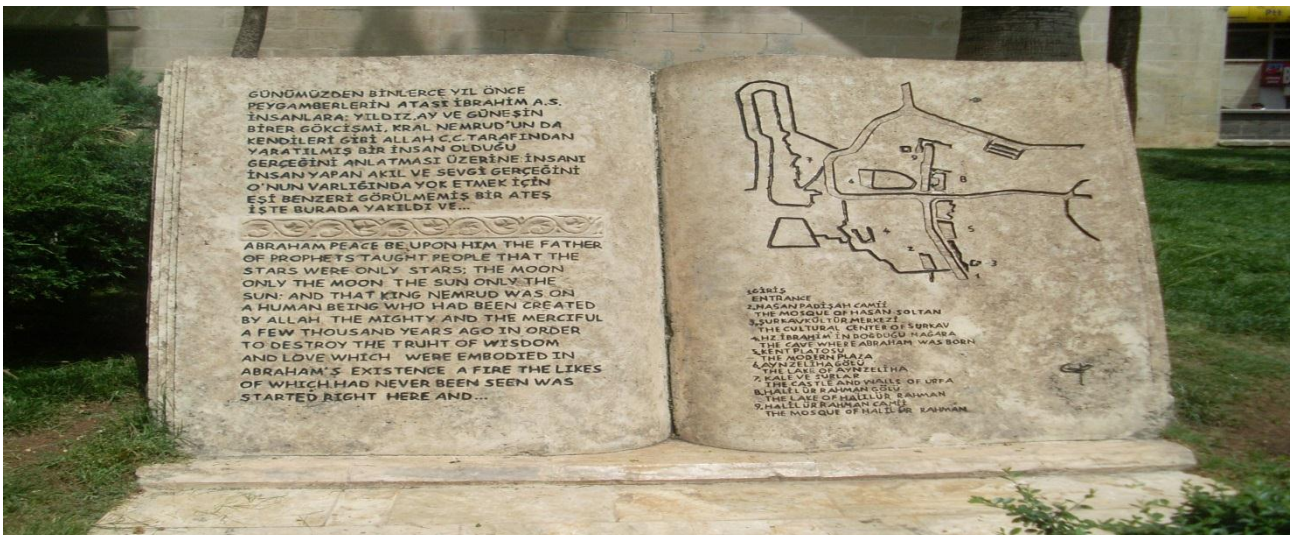 GÜNÜMÜZDEN BİNLERCE YIL ÖNCE
PEYGAMBERLERİN ATASI İBRAHİM A.S.
İNSANLARA; YILDIZ, AY VE GÜNEŞİN
BİRER GÖKCİSMİ, KRAL NEMRUD'UN DA
KENDİLERİ GİBİ ALLAH C.C. TARAFINDAN
YARATILMIŞ BİR İNSAN OLDUĞU
GERÇEĞİNİ ANLATMASI ÜZERİNE; İNSANI
İNSAN YAPAN AKIL VE SEVGİ GERÇEĞİNİ
O'NUN VARLIĞINDA YOK ETMEK İÇİN
EŞİ BENZERİ GÖRÜLMEMİŞ BİR ATEŞ
İŞTE BURADA YAKILDI VE...
ABRAHAM PEACE BE UPON HIM THE FATHER
OF PROPHETS TAUGHT PEOPLE THAT THE
STARS WERE ONLY STARS; THE MOON
ONLY THE MOON THE SUN ONLY THE
SUN; AND THAT KING NEMRUD WAS ON
A HUMAN BEING WHO HAD BEEN CREATED
BY ALLAH THE MIGHTY AND THE MERCIFUL
A FEW THOUSAND YEARS AGO IN ORDER
TO DESTROY THE TRUHT OF WISDOM
AND LOVE WHICH WERE EMBODIED IN
ABRAHAM'S EXISTENCE A FIRE THE LIKES
OF WHICH HAD NEVER BEEN SEEN WAS
STARTED RIGHT HERE AND...
9
8
4
5
2
3
1
1.GİRİŞ
ENTRANCE
2.HASAN PADİŞAH CAMİİ
THE MOSQUE OF HASAN SOLTAN
3.ŞURKAV KÜLTÜR MERKEZİ
THE CULTURAL CENTER OF ŞURKAV
4.HZ İBRAHİM'İN DOĞDUĞU MAĞARA
THE CAVE WHERE ABRAHAM WAS BORN
5.KENT PLATOSU
THE MODERN PLAZA
6.AYNZELİHA GÖLÜ
THE LAKE OF AYNZELİHA
7.KALE VE SURLAR
THE CASTLE AND WALLS OF URFA
8.HALİLÜR RAHMAN GÖLÜ
THE LAKE OF HALİLÜR RAHMAN
9.HALİLÜR RAHMAN CAMİİ
THE MOSQUE OF HALİLÜR RAHMAN